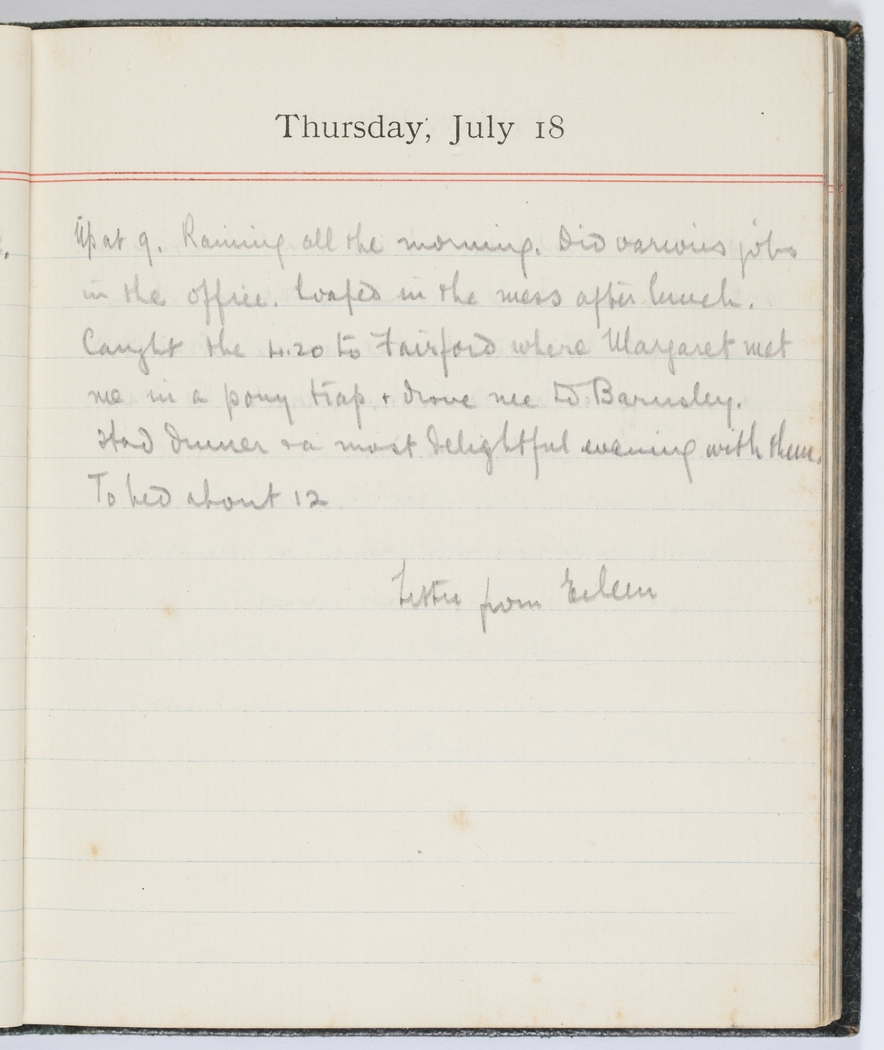 Thursday, July 18
Up at 9. Raining all the morning. Did various jobs
in the office. Loafed in the mess after lunch.
Caught the 4.20 to Fairford where Margaret met
me in a pony trap + drove me to Barnsley.
Had dinner + a most delightful evening with them.
To bed about 12
Letter from Eileen